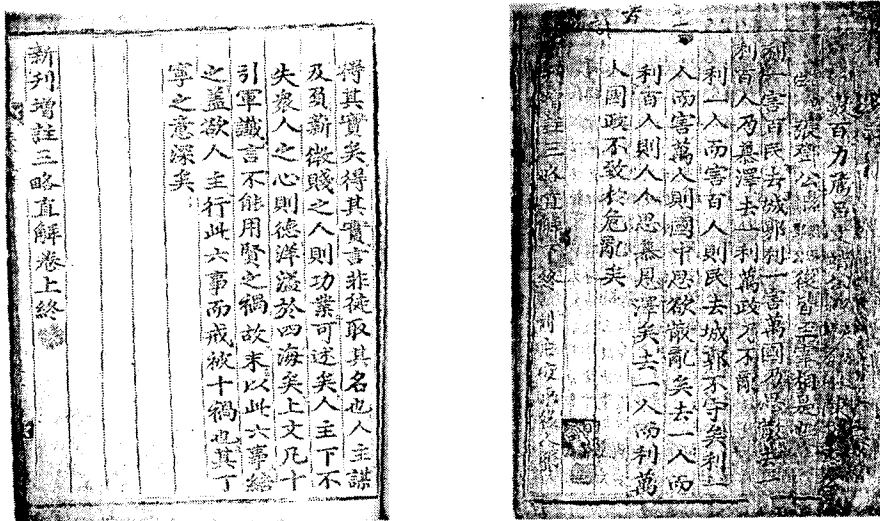 得其實矣得其實言非徒取其名也人主謀
及負薪微賤之人則功業可述矣人主下不
失衆人之心則德洋溢於四海矣上文凡十
引軍讖言不能用賢之禍故末以此六事結
之蓋欲人主行此六事而戒彼十禍也其丁
寧之意深矣
新刊增註三略直解卷上終
利一害百民去城郭利一害萬國乃思散去一
利百人乃慕澤去一利萬政乃不亂
利一人而害百人則民去城郭不守矣利一
人而害萬人則國中思欲散亂矣去一人而
利百人則人人思慕恩澤矣去一人而利萬
人國政不致於危亂矣
增註三略直解下終